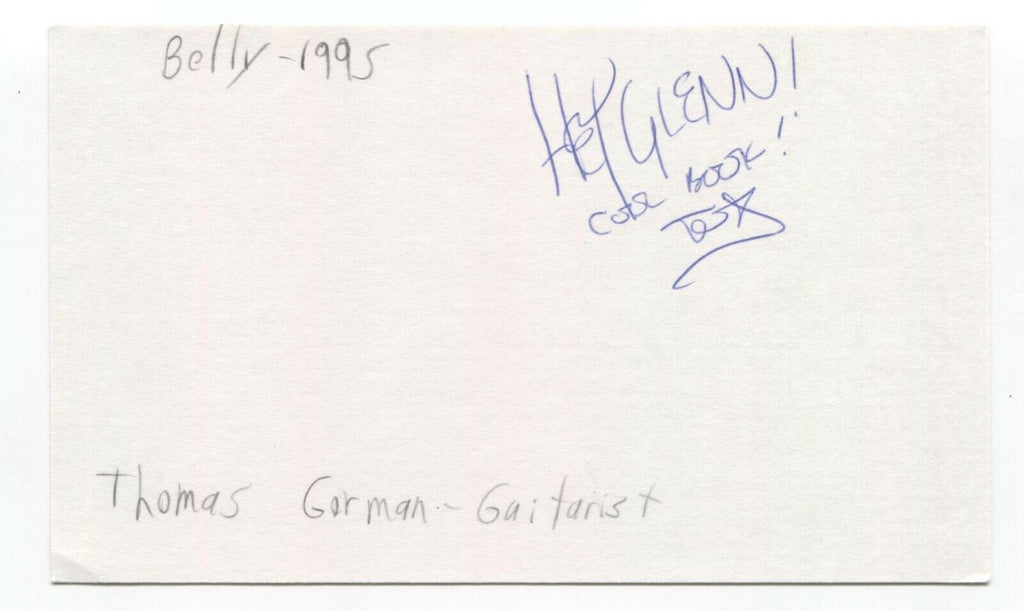 Belly - 1995
HEY GLENN!
BOOK!
Thomas Gorman - Guitarist